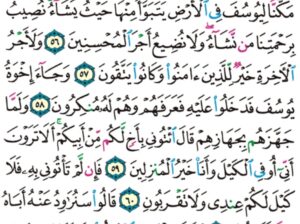 مَكَّنَّا لِيُوسُفَ فِي ٱلْأَرْضِ يَتَبَوَّأُ مِنْهَا حَيْثُ يَشَآءُ نُصِيبُ
بِرَحْمَتِنَا مَن نَّشَآءُ وَلَا نُضِيعُ أَجْرَ ٱلْمُحْسِنِينَ ٥٦ وَلَأَجْرُ
ٱلْآخِرَةِ خَيْرٌ لِّلَّذِينَ ءَامَنُوا۟ وَكَانُوا۟ يَتَّقُونَ ٥٧ وَجَآءَ إِخْوَةُ
يُوسُفَ فَدَخَلُوا۟ عَلَيْهِ فَعَرَفَهُمْ وَهُمْ لَهُۥ مُنكِرُونَ ٥٨ وَلَمَّا
جَهَّزَهُم بِجَهَازِهِمْ قَالَ ٱئْتُونِى بِأَخٍ لَّكُم مِّنْ أَبِيكُمْ أَلَا تَرَوْنَ
أَنِّىٓ أُوفِى ٱلْكَيْلَ وَأَنَا۠ خَيْرُ ٱلْمُنزِلِينَ ٥٩ فَإِن لَّمْ تَأْتُونِى بِهِۦ فَلَا
كَيْلَ لَكُمْ عِندِى وَلَا تَقْرَبُونِ ٦٠ قَالُوا۟ سَنُرَٰوِدُ عَنْهُ أَبَاهُ